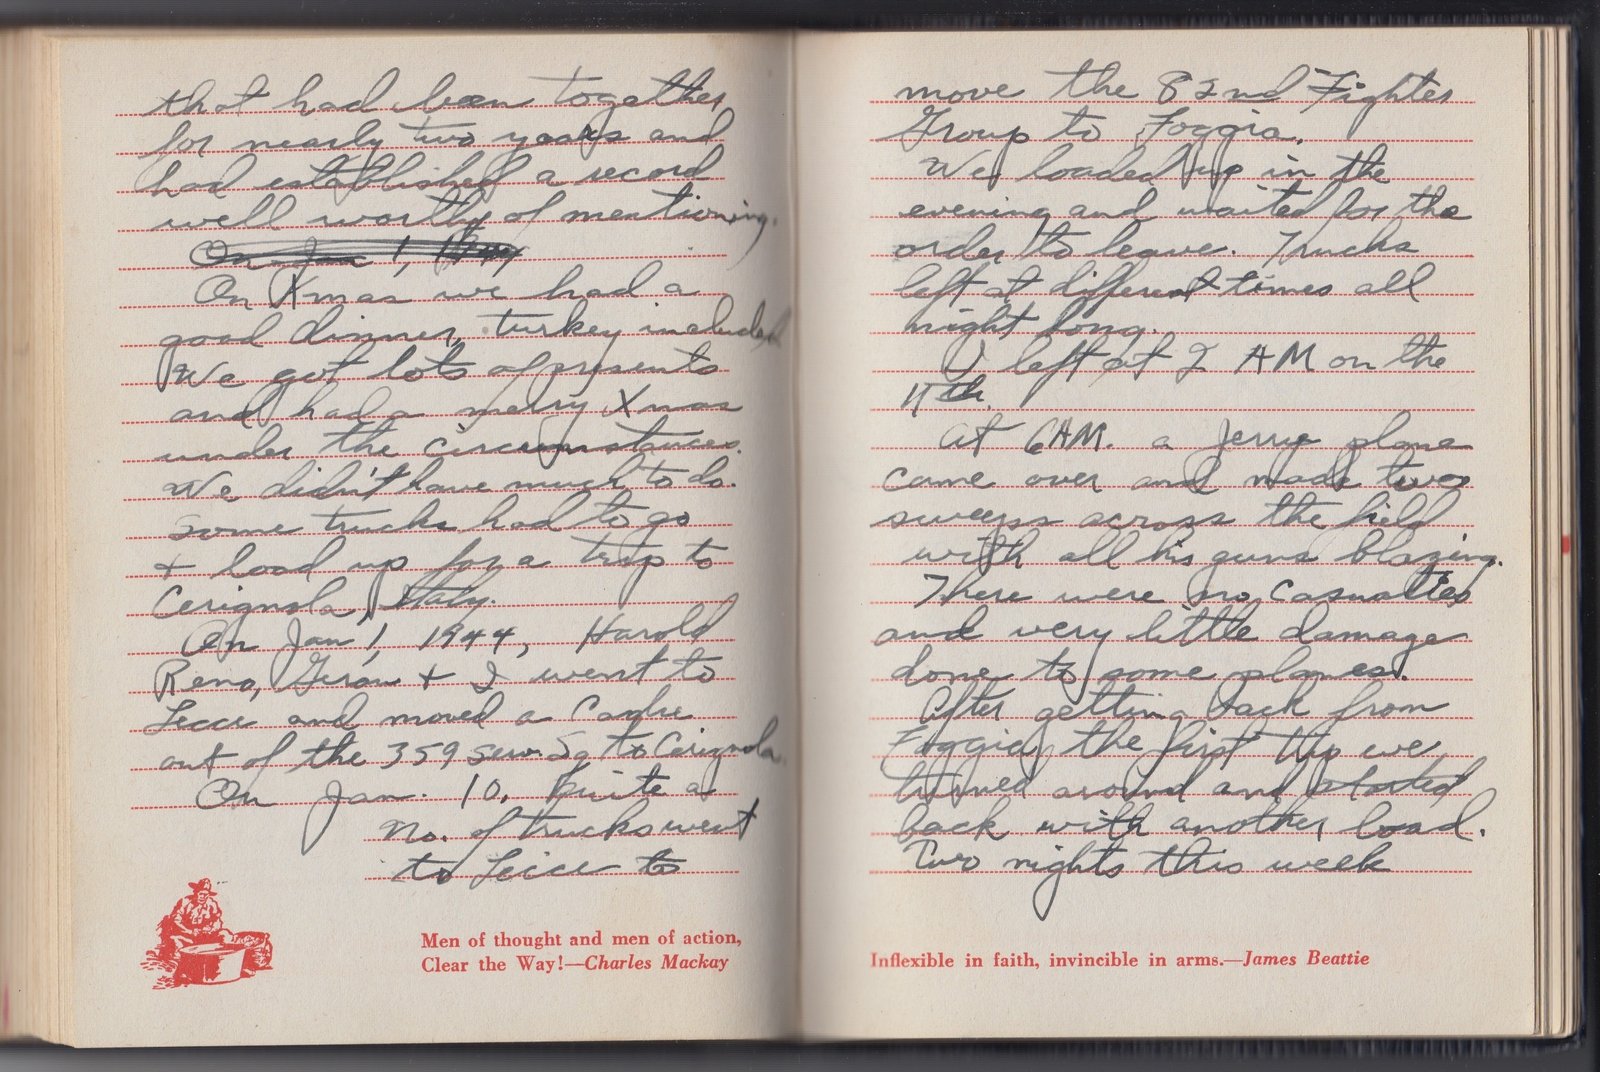 that had been together
for nearly two years and
had established a record
well worthy of mentioning.
On Jan 1, 1944
On Xmas we had a
good dinner, turkey included
We got lots of presents
and had a merry Xmas
under the circumstances.
We didn't have much to do.
Some trucks had to go
+ load up for a trip to
Cerignola, Italy.
On Jan 1, 1944, Harold
Reno, + I went to
Lecce and moved a Cadre
out of the 359 Serv. Sq to Cerignola.
On Jan. 10, Quite a
No. of trucks went
to Lecce to
Men of thought and men of action,
Clear the Way!—Charles Mackay
move the 82nd Fighter
Group to Foggia.
We loaded up in the
evening and waited for the
order to leave. Trucks
left at different times all
night long.
I left at 2 AM on the
11th.
At 6 AM. a Jerry plane
came over and made two
sweeps across the field
with all his guns blazing.
There were no Casualties
and very little damage
done to some planes.
After getting back from
Foggia, the first trip we
turned around and started
back with another load.
Two nights this week
Inflexible in faith, invincible in arms.—James Beattie